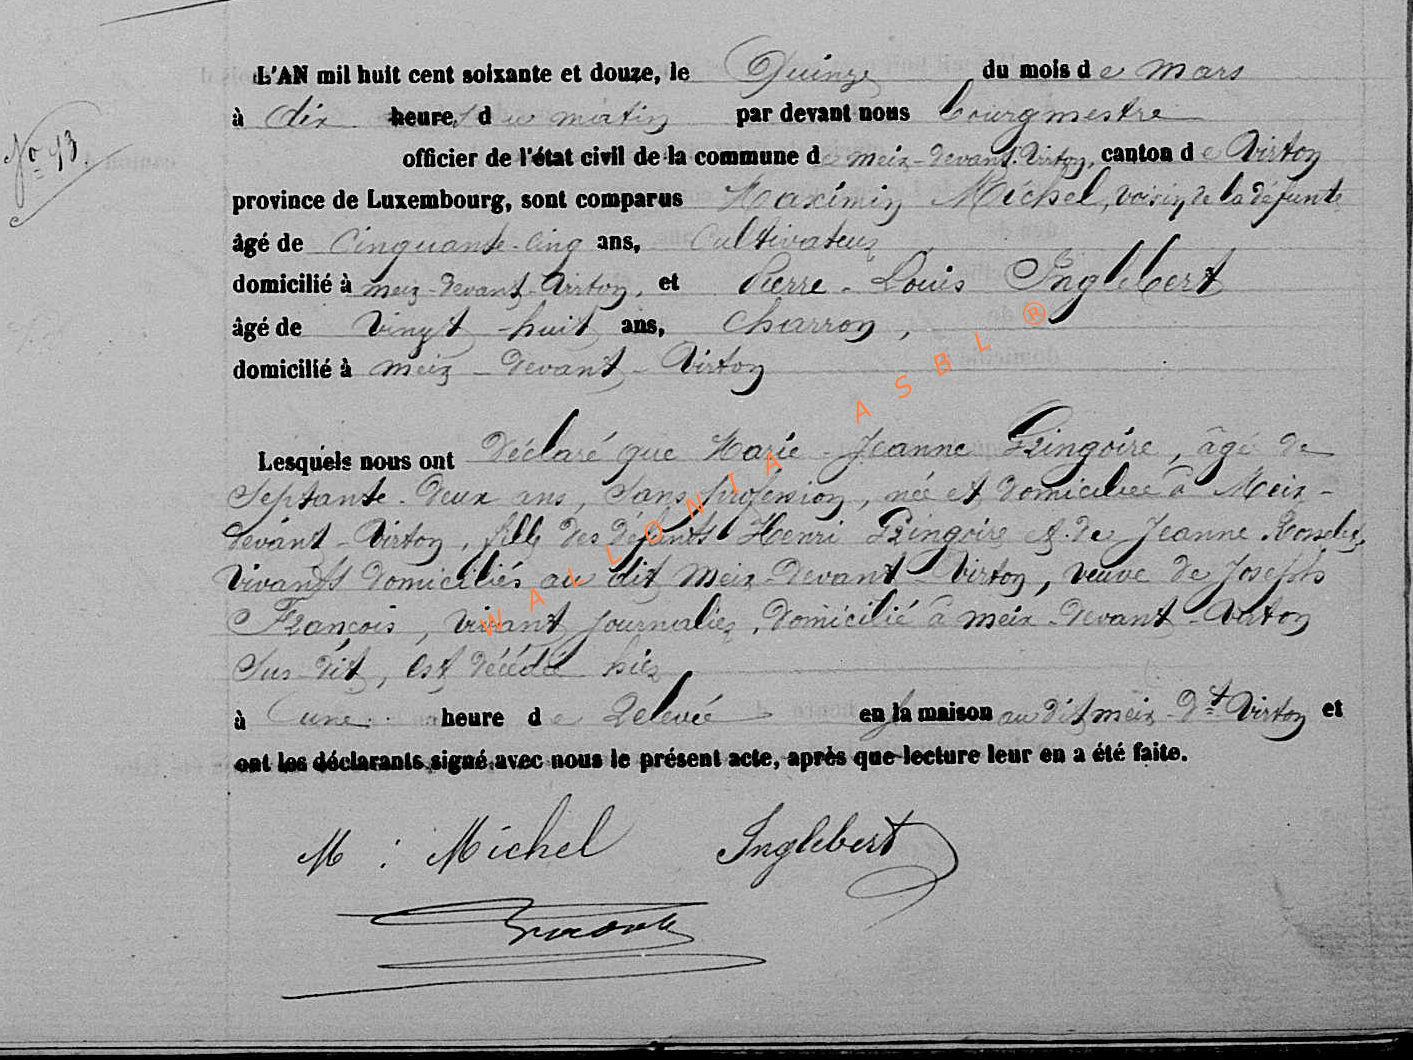 L'AN mil huit cent soixante et douze, le Quinze du mois de mars
à dix heures du matin par devant nous bourgmestre
No 13
officier de l'état civil de la commune de meix-devant-Virton, canton de Virton
province de Luxembourg, sont comparus Maximin Michel, voisin de la défunte
âgé de Cinquante-cinq ans, Cultivateur
domicilié à meix-devant-Virton, et Pierre-Louis Inglebert
âgé de vingt-huit ans, charron,
domicilié à meix-devant-Virton
Lesquels nous ont déclaré que Marie-Jeanne Gringoire, âgé de
Septante-deux ans, Sans profession, née et domiciliée à Meix-
devant-Virton, fille des défunts Henri Gringoire et de Jeanne
Vivants domiciliés au dit meix-devant-Virton, veuve de Joseph
François, vivant journalier, domicilié à meix-devant-Virton
Sus-dit, est décédée hier
à une heure de Relevée en la maison au dit meix-dt-Virton et
ont les déclarants signé avec nous le présent acte, après que lecture leur en a été faite.
M : Michel Inglebert
WALLONIA ASBL ®